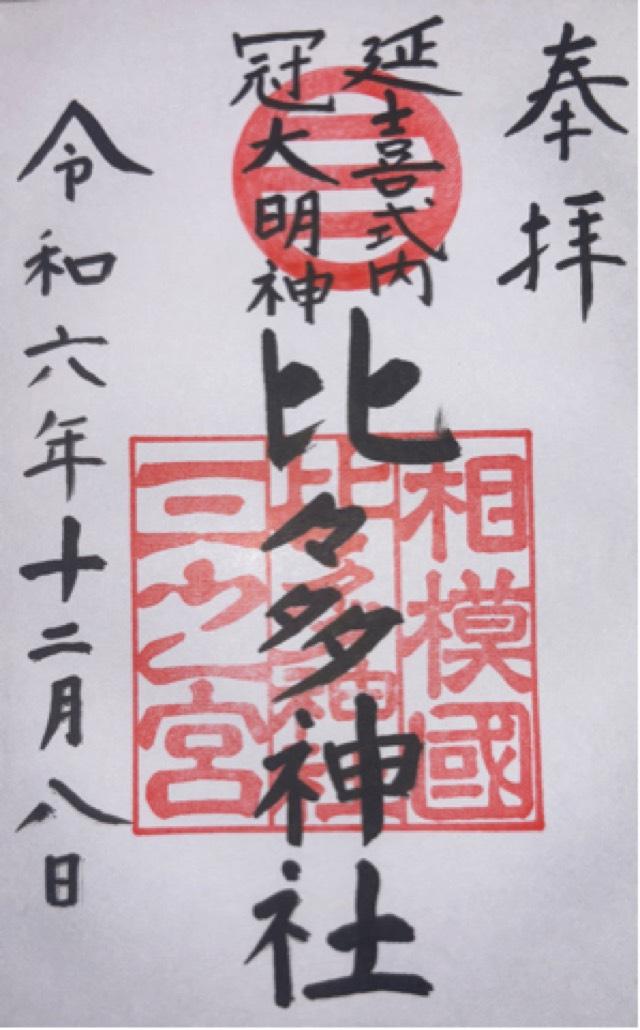 奉拝
延喜式内
冠大明神
比々多神社
相模國
比々多神社
三之宮
令和六年十二月八日